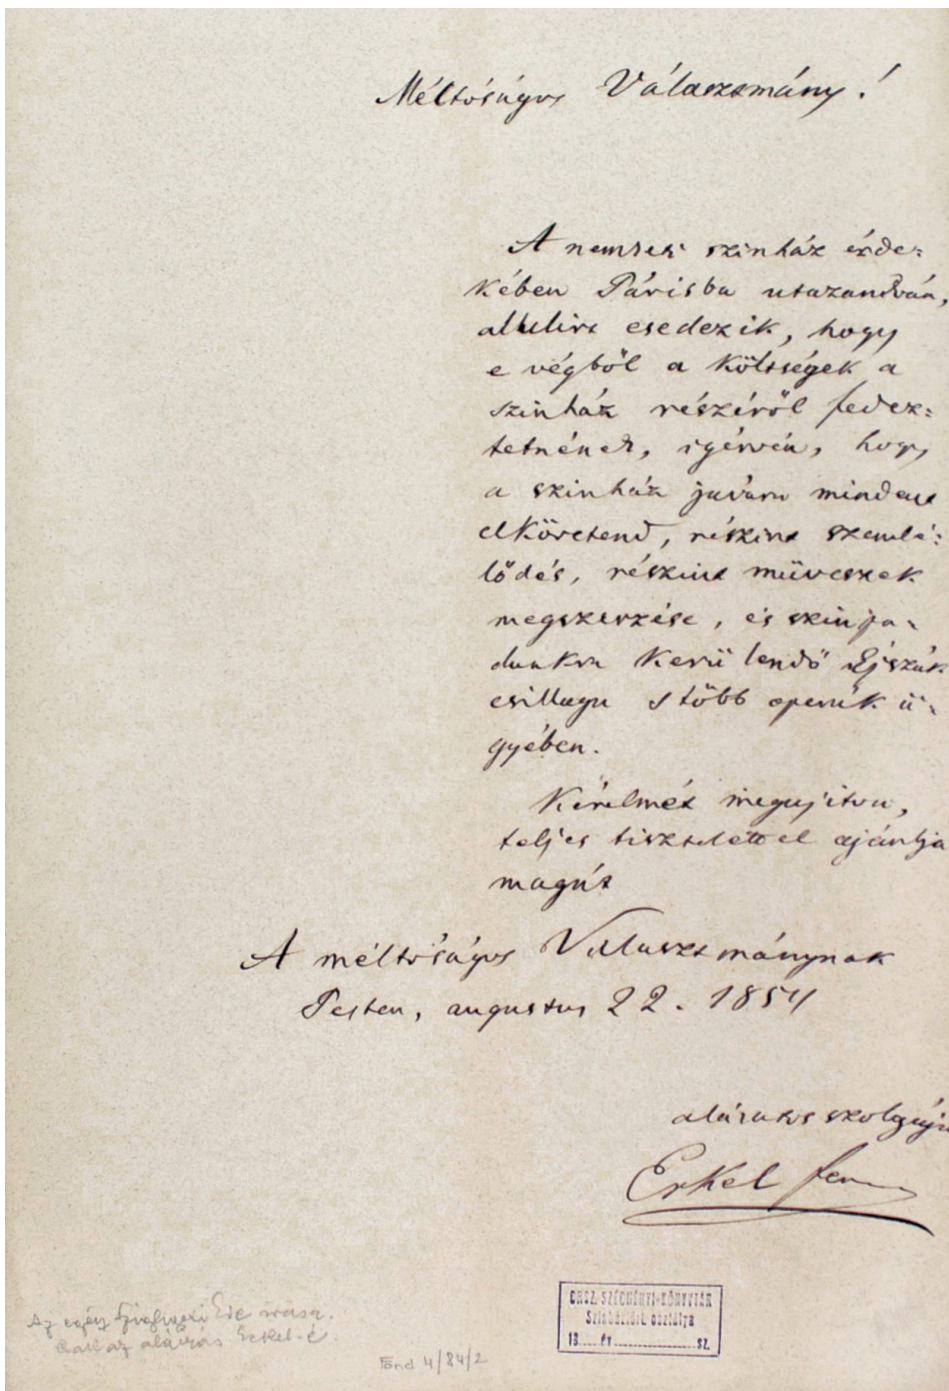 Méltóságos Válasszmány!
A nemzeti szinház érde:
kében Párisba utazandván,
alulirt esedezik, hogy
e végből a költségek a
szinház részéről fedez:
tetnének, igérvén, hogy
a szinház javára mindent
elkövetend, részint szemlé:
lődés, részint művészek
megszerzése, és szinpa-
dunkra kerülendő Éjszak
csillaga s több operák ü-
gyében.
Kérelmét megujitva,
teljes tisztelettel ajánlja
magát
A méltóságos Választmánynak
Pesten, augustus 22. 1854
alázatos szolgája
Erkel Feren
Az egész Ede irása.
Csak az aláirás Erkel-é.
Fond 4/84/2
ORSZ. SZÉCHÉNYI-KÖNYVTÁR
Szinháztört. osztálya
19..... év..................sz.